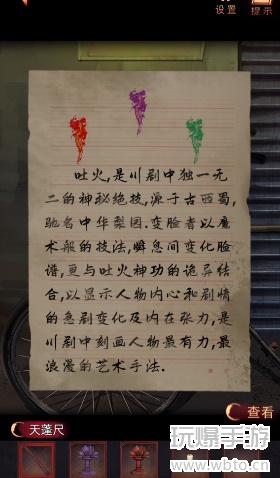 设置 提示
吐火,是川剧中独一无
二的神秘绝技,源于古西蜀,
驰名中华梨园.变脸者以魔
术般的技法,瞬息间变化脸
谱,更与吐火神功的诡异结
合,以显示人物内心和剧情
的急剧变化及内在张力,是
川剧中刻画人物最有力,最
浪漫的艺术手法.
查看
天蓬尺
玩爆手游
www.wbto.cn